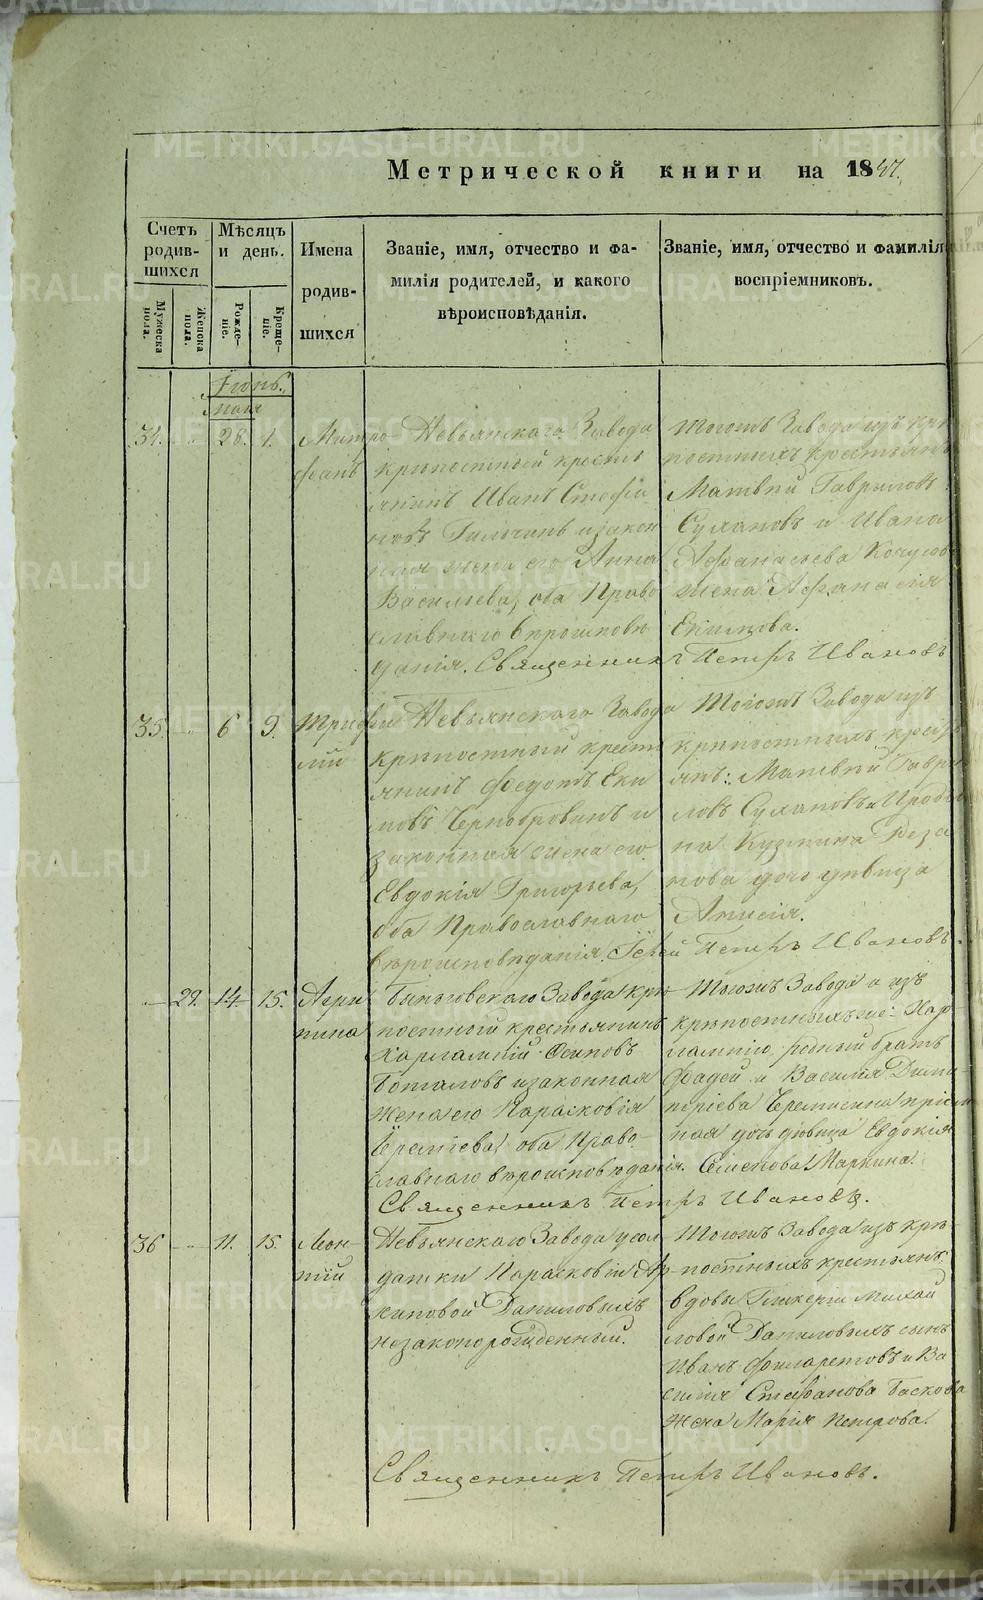 Метрической книги на 1847.
Счетъ родив-шихся
Мѣсяцъ и день.
Имена родив-шихся
Званіе, имя, отчество и фа-
милія родителей, и какого
вѣроисповѣданія.
Званіе, имя, отчество и фамилія
воспріемниковъ.
Мужеска пола.
Женска пола.
Рожде-ніе.
Креще-ніе.
Іюнь.
Мая
34. 28. 1. Митро-
фанъ
Невьянскаго Завода
крѣпостный кресть
янинъ Иванъ Стефа
новъ и закон
ная жена его Анна
Васильева, оба Право
славнаго вѣроисповѣ
данія. Священникъ Петръ Ивановъ
Тогожъ Завода изъ крѣ
постныхъ крестьянъ
Матвѣй Гавриловъ
Сухановъ и Ивана
Афанасьева
жена Афанасія
Екимова.
35. 6. 9. Трифи
лій
Невьянскаго Завода
крѣпостный кресть
янинъ Федотъ Еки
мовъ Чернобровинъ и
законная жена его
Евдокія Григорьева,
оба Православнаго
вѣроисповѣданія. Іерей Петръ Ивановъ.
Тогожъ Завода изъ
крѣпостныхъ кресть
янъ: Матвѣй Гаври
ловъ Сухановъ и
на Кузмина Реза
нова дочь дѣвица
Анисія.
29. 14. 15. Агри
пина
Быньговскаго Завода крѣ-
постный крестьянинъ
Харлампій Осиповъ
и законная
жена его Парасковія
оба Право-
славнаго вѣроисповѣданія.
Священникъ Петръ Ивановъ.
Тогожъ Завода и изъ
крѣпостныхъ же: Хар-
лампію родный братъ
Фадей и Василія Дими-
тріева Черемисина пріем
ная дочь дѣвица Евдокія
Семенова Маркина.
36 11. 15. Леон-
тій
Невьянскаго Завода у сол
датки Парасковіи Ар-
хиповой Даниловыхъ
незаконорожденный.
Тогожъ Завода изъ крѣ-
постныхъ крестьянъ
вдовы Гликеріи Михай
ловой Даниловыхъ сынъ
Иванъ Филаретовъ и Ва
силія Стефанова Баскова
жена Марія Петрова.
Священникъ Петръ Ивановъ.
METRIKI.GASO-URAL.RU